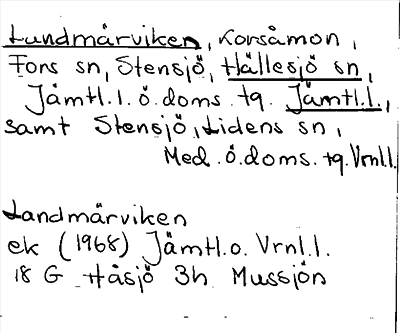 Lundmårviken, Korsåmon,
Fors sn, Stensjö, Hällesjö sn,
Jämtl.l. ö. doms. tg. Jämtl.l.,
samt Stensjö, Lidens sn,
Med. ö. doms. tg. Vrnl.l.
Landmärviken
ek (1968) Jämtl. o. Vrnl.l.
18 G Håsjö 3h Mussjön